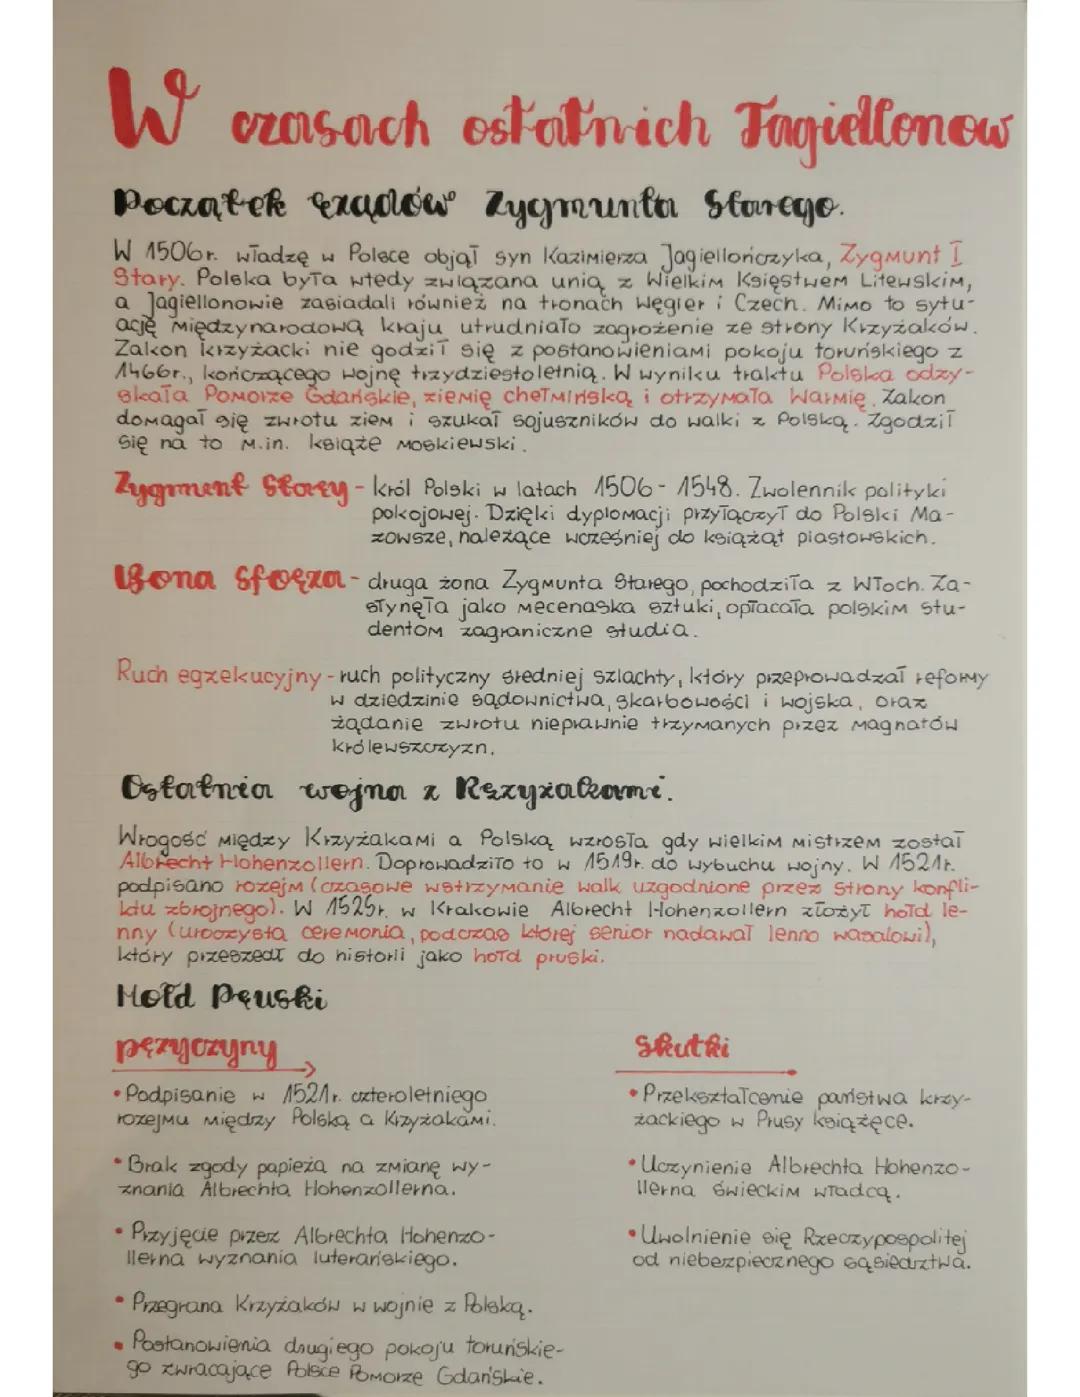 W czasach ostatnich Jagiellonow
Początek rządów Zygmunta Starego.
W 1506r. władzę w Polsce objął syn Kazimierza Jagiellończyka, Zygmunt I
Stary. Polska była wtedy związana unią z Wielkim Księstwem Litewskim,
a Jagiellonowie zasiadali również na tronach Węgier i Czech. Mimo to sytu-
ację międzynarodową kraju utrudniało zagrożenie ze strony Krzyżaków.
Zakon krzyżacki nie godził się z postanowieniami pokoju toruńskiego z
1466r., kończącego wojnę trzydziestoletnią. W wyniku traktu Polska odzy-
skała Pomorze Gdańskie, ziemię chełmińską i otrzymała Warmię. Zakon
domagał się zwrotu ziem i szukał sojuszników do walki z Polską. Zgodził
się na to m.in. książe moskiewski.
Zygmunt Stary - król Polski w latach 1506 - 1548. Zwolennik polityki
pokojowej. Dzięki dyplomacji przyłączył do Polski Ma-
zowsze, należące wcześniej do książąt piastowskich.
Bona Sforza - druga żona Zygmunta Starego, pochodziła z Włoch. Za-
słynęła jako mecenaska sztuki, opłacała polskim stu-
dentom zagraniczne studia.
Ruch egzekucyjny - ruch polityczny średniej szlachty, który przeprowadzał reformy
w dziedzinie sądownictwa, skarbowości i wojska, oraz
żądanie zwrotu nieprawnie trzymanych przez magnatów
królewszczyzn.
Ostatnia wojna z Krzyżakami.
Wrogość między Krzyżakami a Polską wzrosła gdy wielkim mistrzem został
Albrecht Hohenzollern. Doprowadziło to w 1519r. do wybuchu wojny. W 1521r.
podpisano rozejm (czasowe wstrzymanie walk uzgodnione przez strony konfli-
ktu zbrojnego). W 1525r. w Krakowie Albrecht Hohenzollern złożył hołd le-
nny (uroczysta ceremonia, podczas której senior nadawał lenno wasalowi),
który przeszedł do historii jako hołd pruski.
Hołd Pruski
przyczyny
• Podpisanie w 1521r. czteroletniego
rozejmu między Polską a Krzyżakami.
• Brak zgody papieża na zmianę wy-
znania Albrechta Hohenzollerna.
• Przyjęcie przez Albrechta Hohenzo-
llerna wyznania luterańskiego.
• Przegrana Krzyżaków w wojnie z Polską.
• Postanowienia drugiego pokoju toruńskie-
go zwracające Polsce Pomorze Gdańskie.
Skutki
• Przekształcenie państwa krzy-
żackiego w Prusy książęce.
• Uczynienie Albrechta Hohenzo-
llerna świeckim władcą.
• Uwolnienie się Rzeczypospolitej
od niebezpiecznego sąsiedztwa.